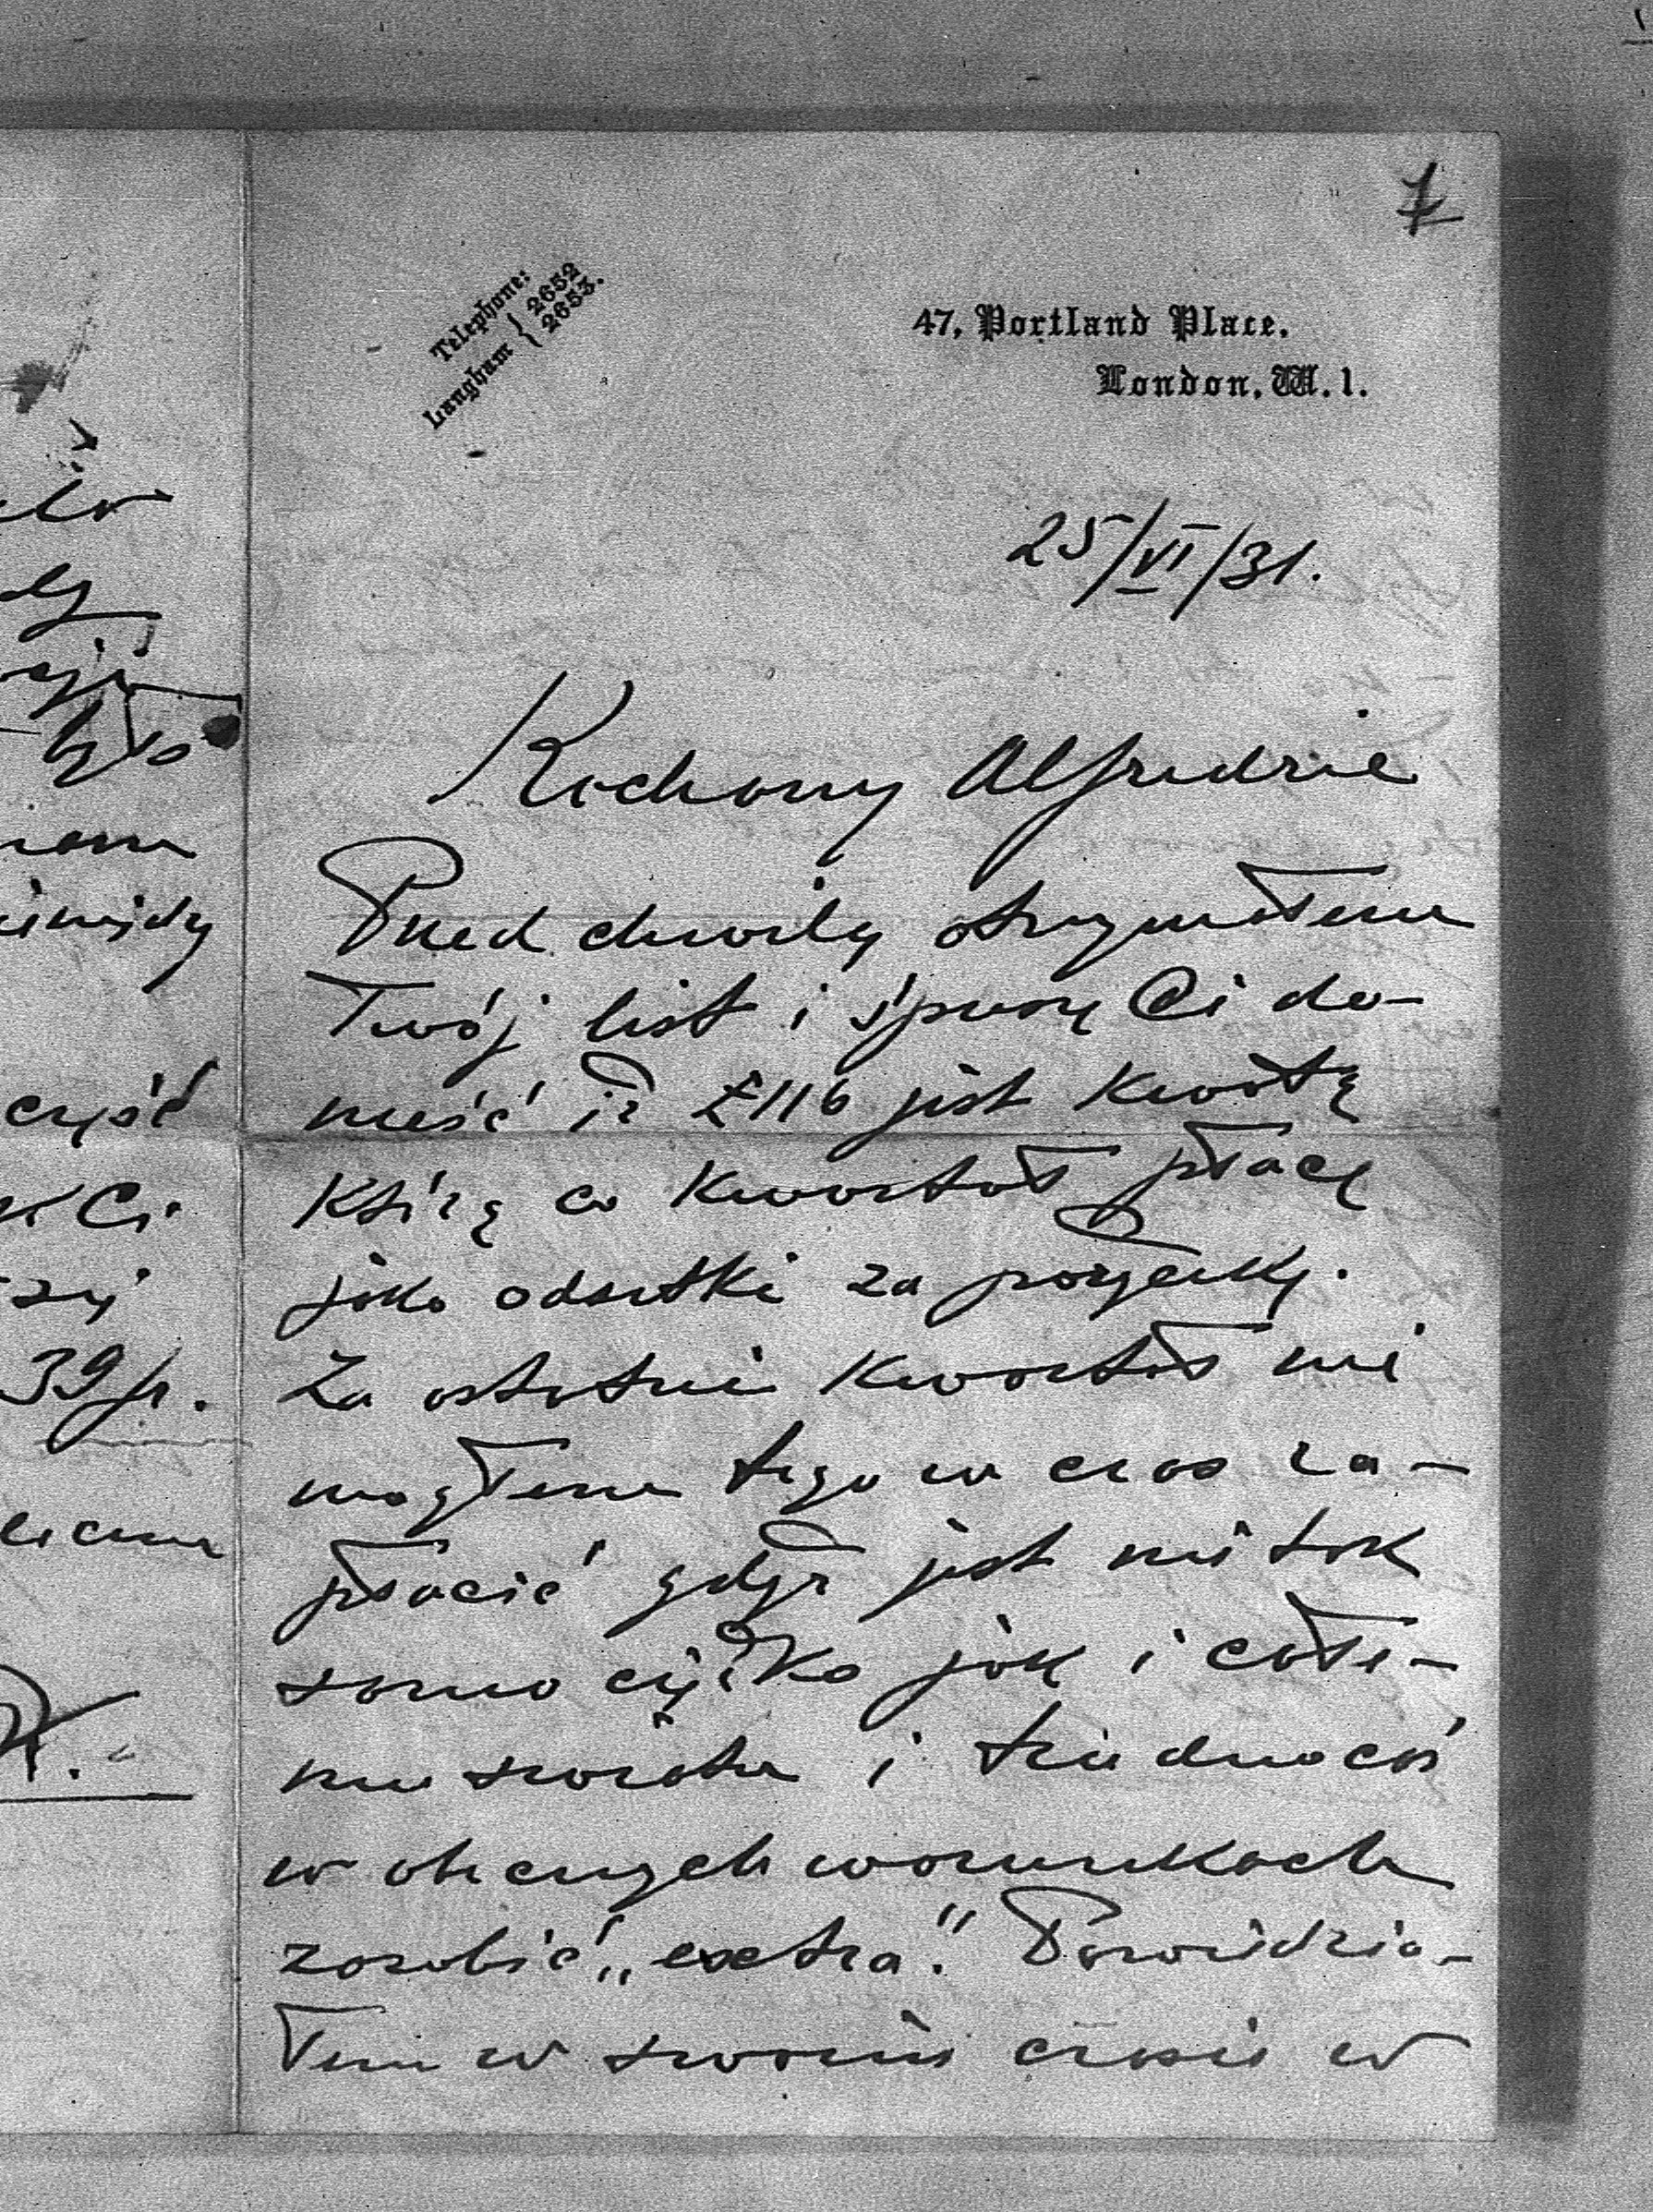 7
Telephone:
Langham { 2652
2653.
47, Portland Place,
London, W. 1.
25/VI/31.
Kochany Alfredzie
Przed chwilą otrzymałem
Twój list i śpieszę Ci do-
nieść iż £116 jest kwotą
którą co kwartał płacę
jako odsetki za pożyczkę.
Za ostatni kwartał nie
mogłem tego w czas za-
płacić gdyż jest mi tak
samo ciężko jak i całe-
mu światu i trudno coś
w obecnych warunkach
zarobić „extra". Powiedzia-
łem w swoim czasie w
część
Ci
39